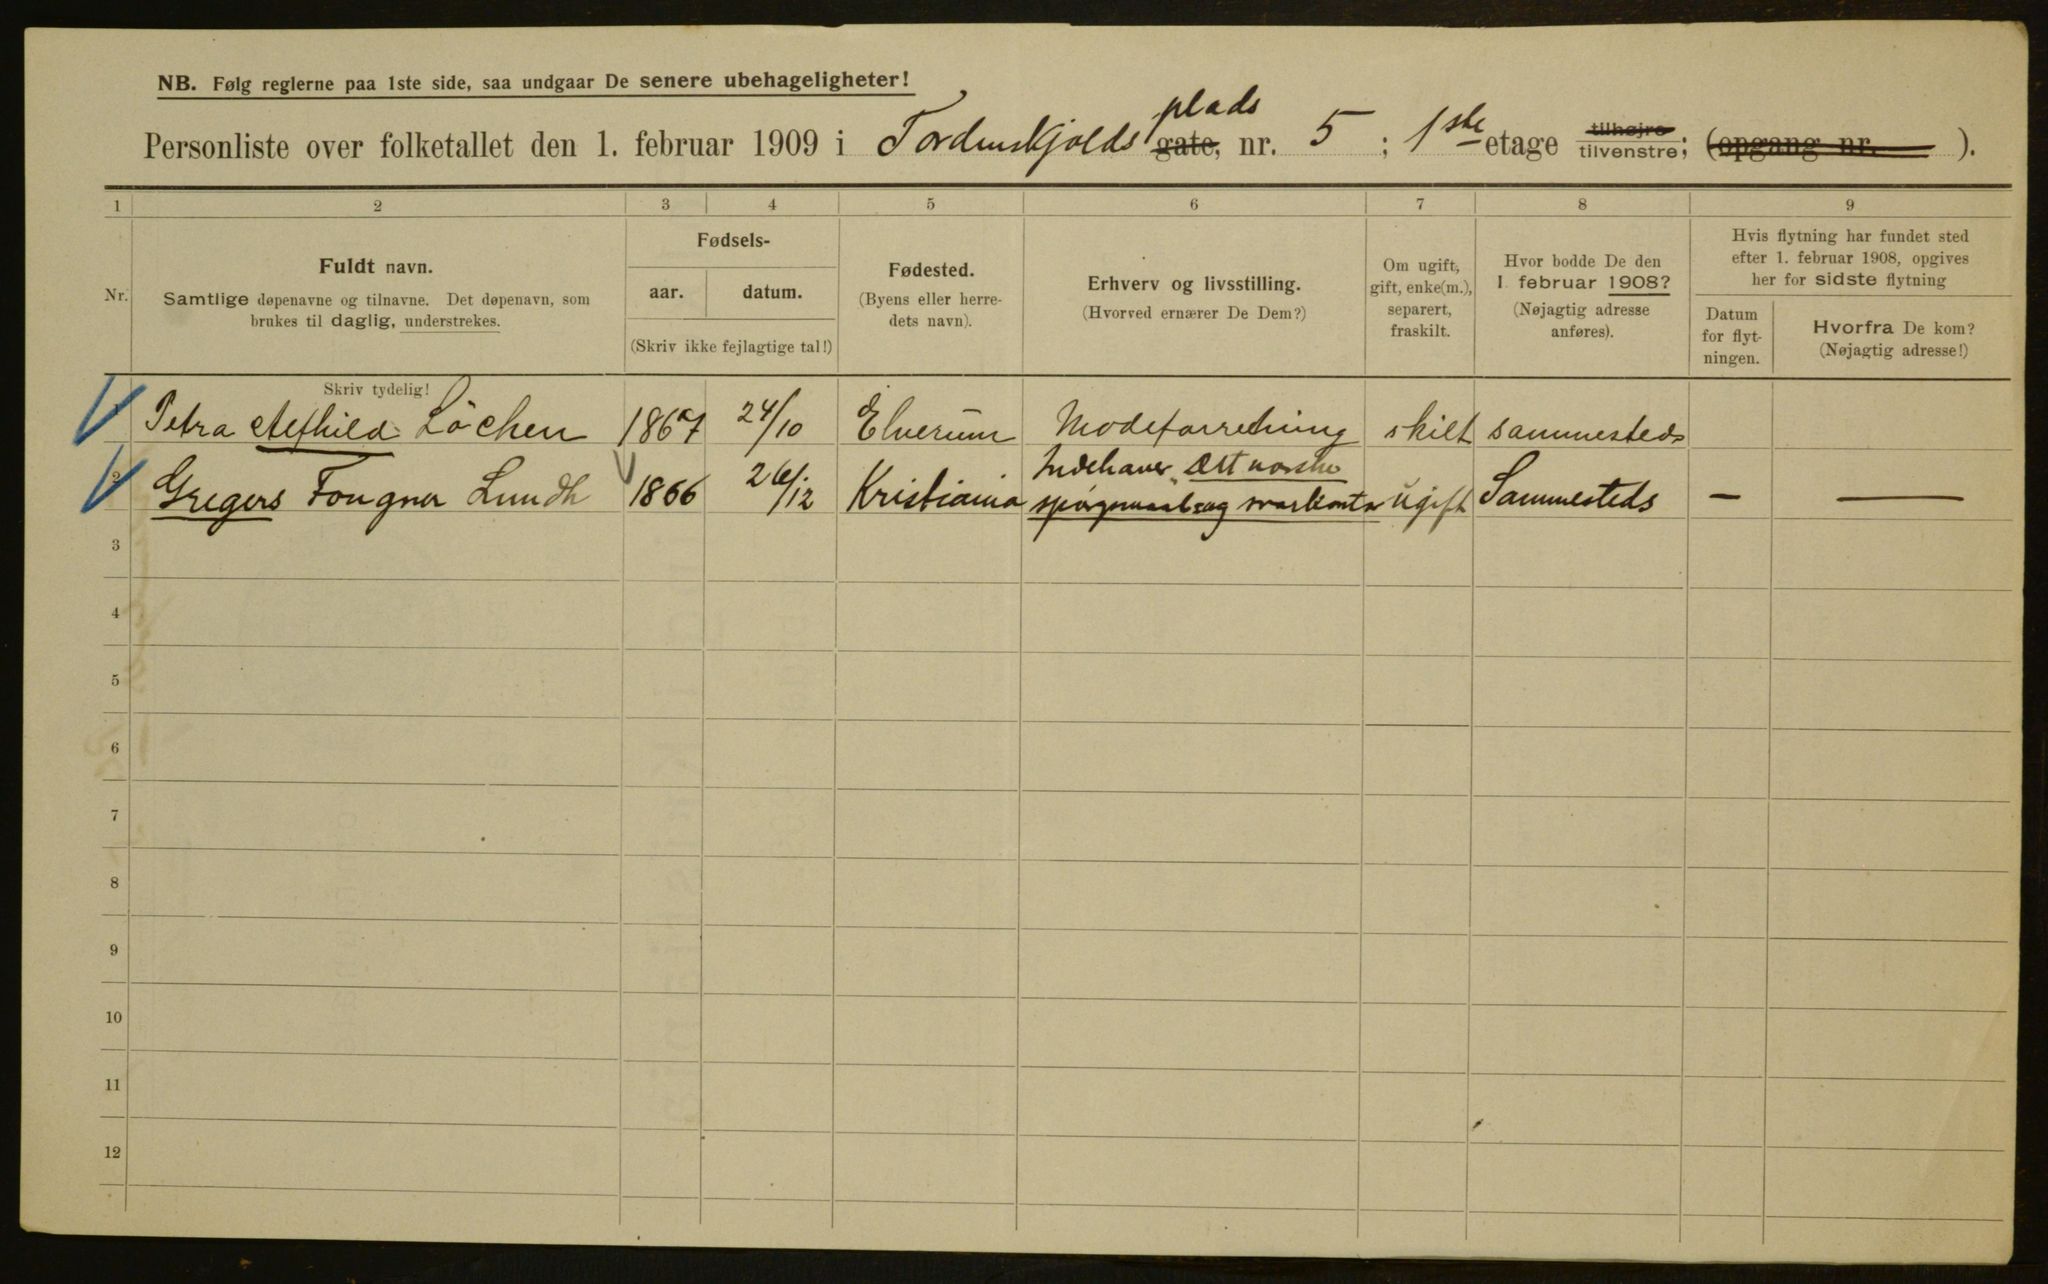 NB. Følg reglerne paa 1ste side, saa undgaar De senere ubehageligheter!
Personliste over folketallet den 1. februar 1909 i Tordenskjolds plads gate, nr. 5 ; 1ste etage tilhøjre tilvenstre; (opgang nr. ).
1 2 3 4 5 6 7 8 9
Nr.
Fuldt navn.
Samtlige døpenavne og tilnavne. Det døpenavn, som
brukes til daglig, understrekes.
Skriv tydelig!
Fødsels-
aar. datum.
(Skriv ikke fejlagtige tal!)
Fødested.
(Byens eller herre-
dets navn).
Erhverv og livsstilling.
(Hvorved ernærer De Dem?)
Om ugift,
gift, enke(m.),
separert,
fraskilt.
Hvor bodde De den
1. februar 1908?
(Nøjagtig adresse
anføres).
Hvis flytning har fundet sted
efter 1. februar 1908, opgives
her for sidste flytning
Datum
for flyt-
ningen.
Hvorfra De kom?
(Nøjagtig adresse!)
1 Petra Alfhild Löchen 1867 24/10 Elverum Modeforretning skilt sammesteds
2 Gregers Fougner Lundh 1866 26/12 Kristiania Indehaver "Det norske
spørgsmaal og svarkontor ugift Sammesteds — —
3
4
5
6
7
8
9
10
11
12